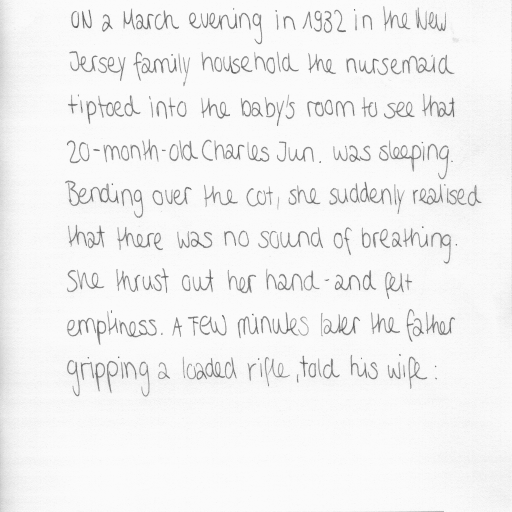 ON a March evening in 1932 in the New
Jersey family household the nursemaid
tiptoed into the baby's room to see that
20-month-old Charles Jun. was sleeping.
Bending over the cot, she suddenly realised
that there was no sound of breathing.
She thrust out her hand-and felt
emptiness. A FEW minutes later the father
gripping a loaded rifle, told his wife: